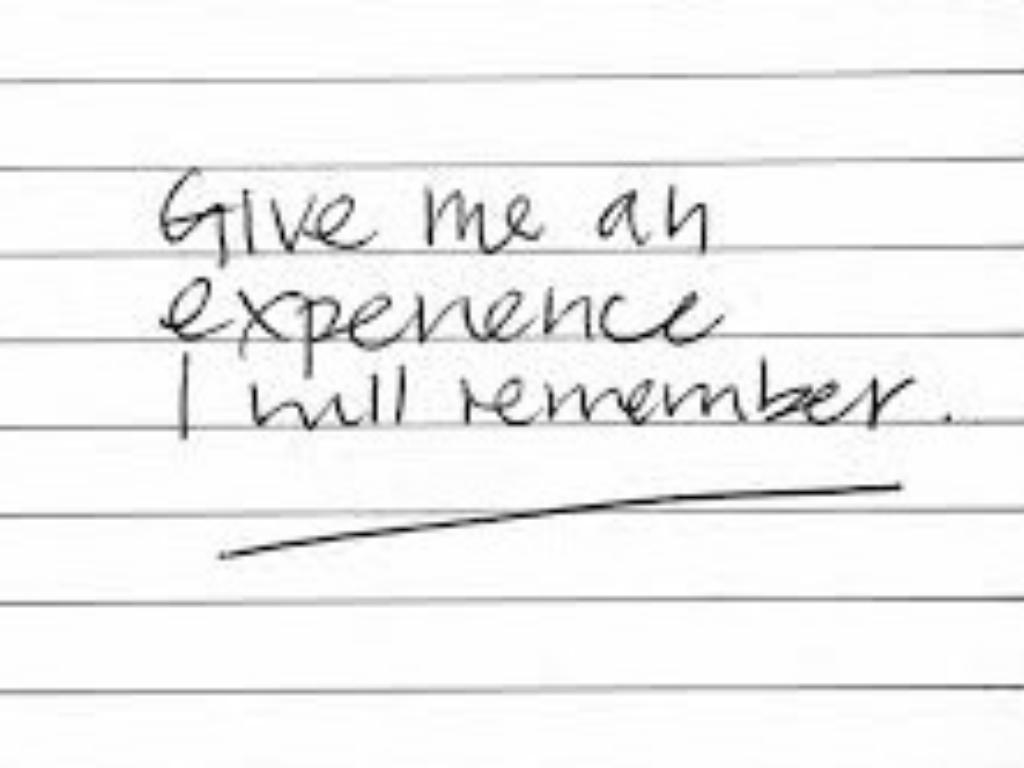 Give me an
experience
I will remember.